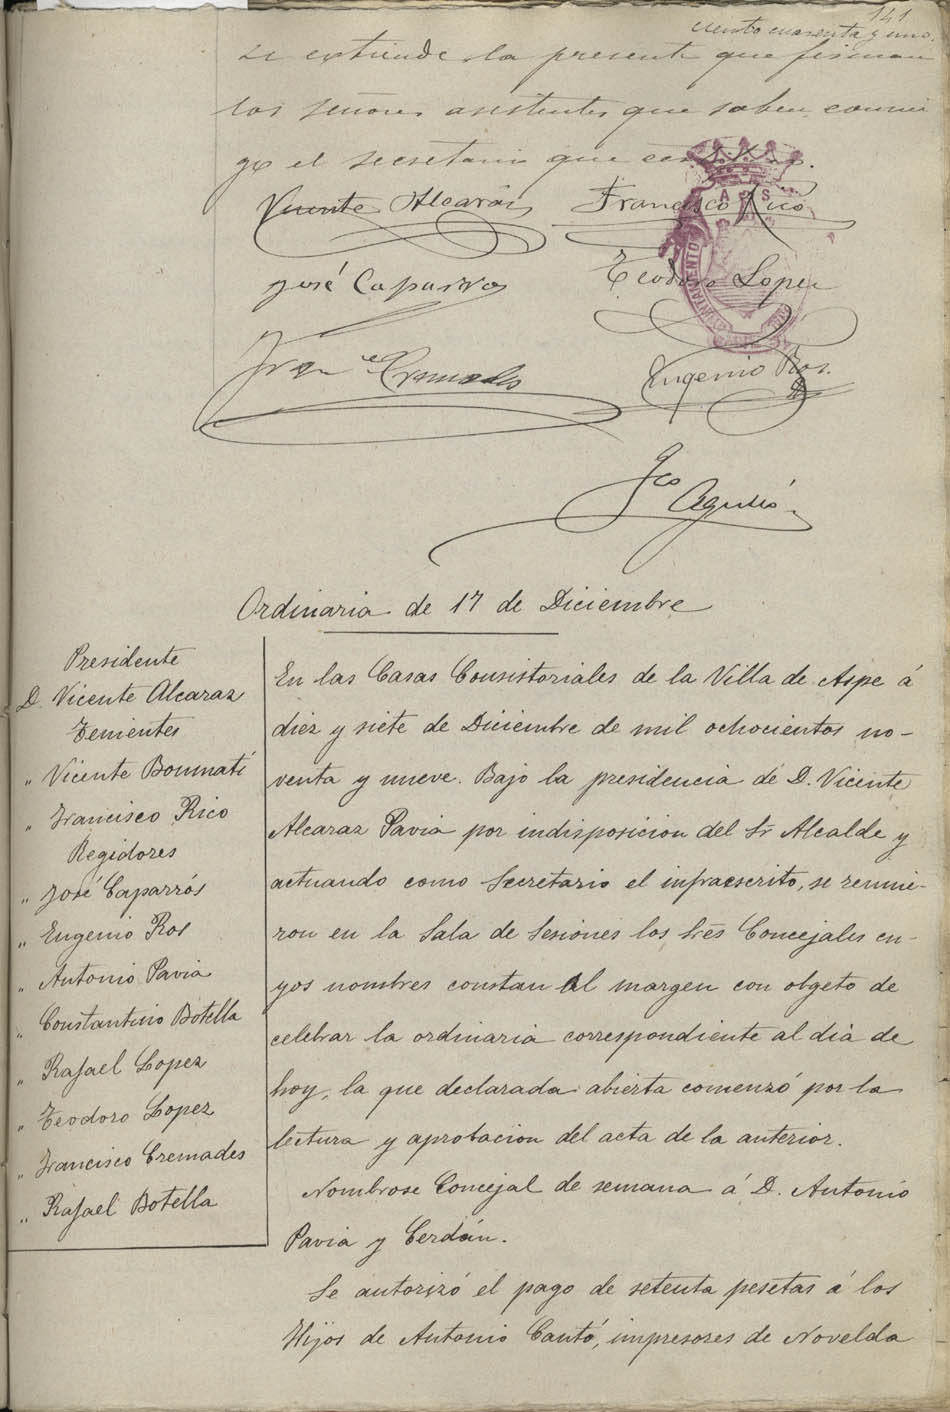 141
ciento cuarenta y uno.
se extiende la presente que firman
los señores asistentes que saben conmi
go el secretario que certifico.
Vicente Alcaraz Francisco Rico
José Caparros Teodoro Lopez
AYUNTAMIENTO
Fran Cremades Eugenio Ros.
Fco Agulló
Ordinaria de 17 de Diciembre
Presidente
D. Vicente Alcaraz
Tenientes
„ Vicente Bonmatí
„ Francisco Rico
Regidores
„ José Caparrós
„ Eugenio Ros
„ Antonio Pavia
„ Constantino Botella
„ Rafael Lopez
„ Teodoro Lopez
„ Francisco Cremades
„ Rafael Botella
En las Casas Consistoriales de la Villa de Aspe á
diez y siete de Diciembre de mil ochocientos no-
venta y nueve. Bajo la presidencia de D. Vicente
Alcaraz Pavia por indisposicion del Sr Alcalde y
actuando como Secretario el infraescrito, se reunie-
ron en la Sala de Sesiones los Sres Concejales cu-
yos nombres constan al margen con objeto de
celebrar la ordinaria correspondiente al dia de
hoy, la que declarada abierta comenzó por la
lectura y aprobacion del acta de la anterior.
Nombrose Concejal de semana á D. Antonio
Pavia y Cerdán.
Se autorizó el pago de setenta pesetas á los
Hijos de Antonio Cantó, impresores de Novelda